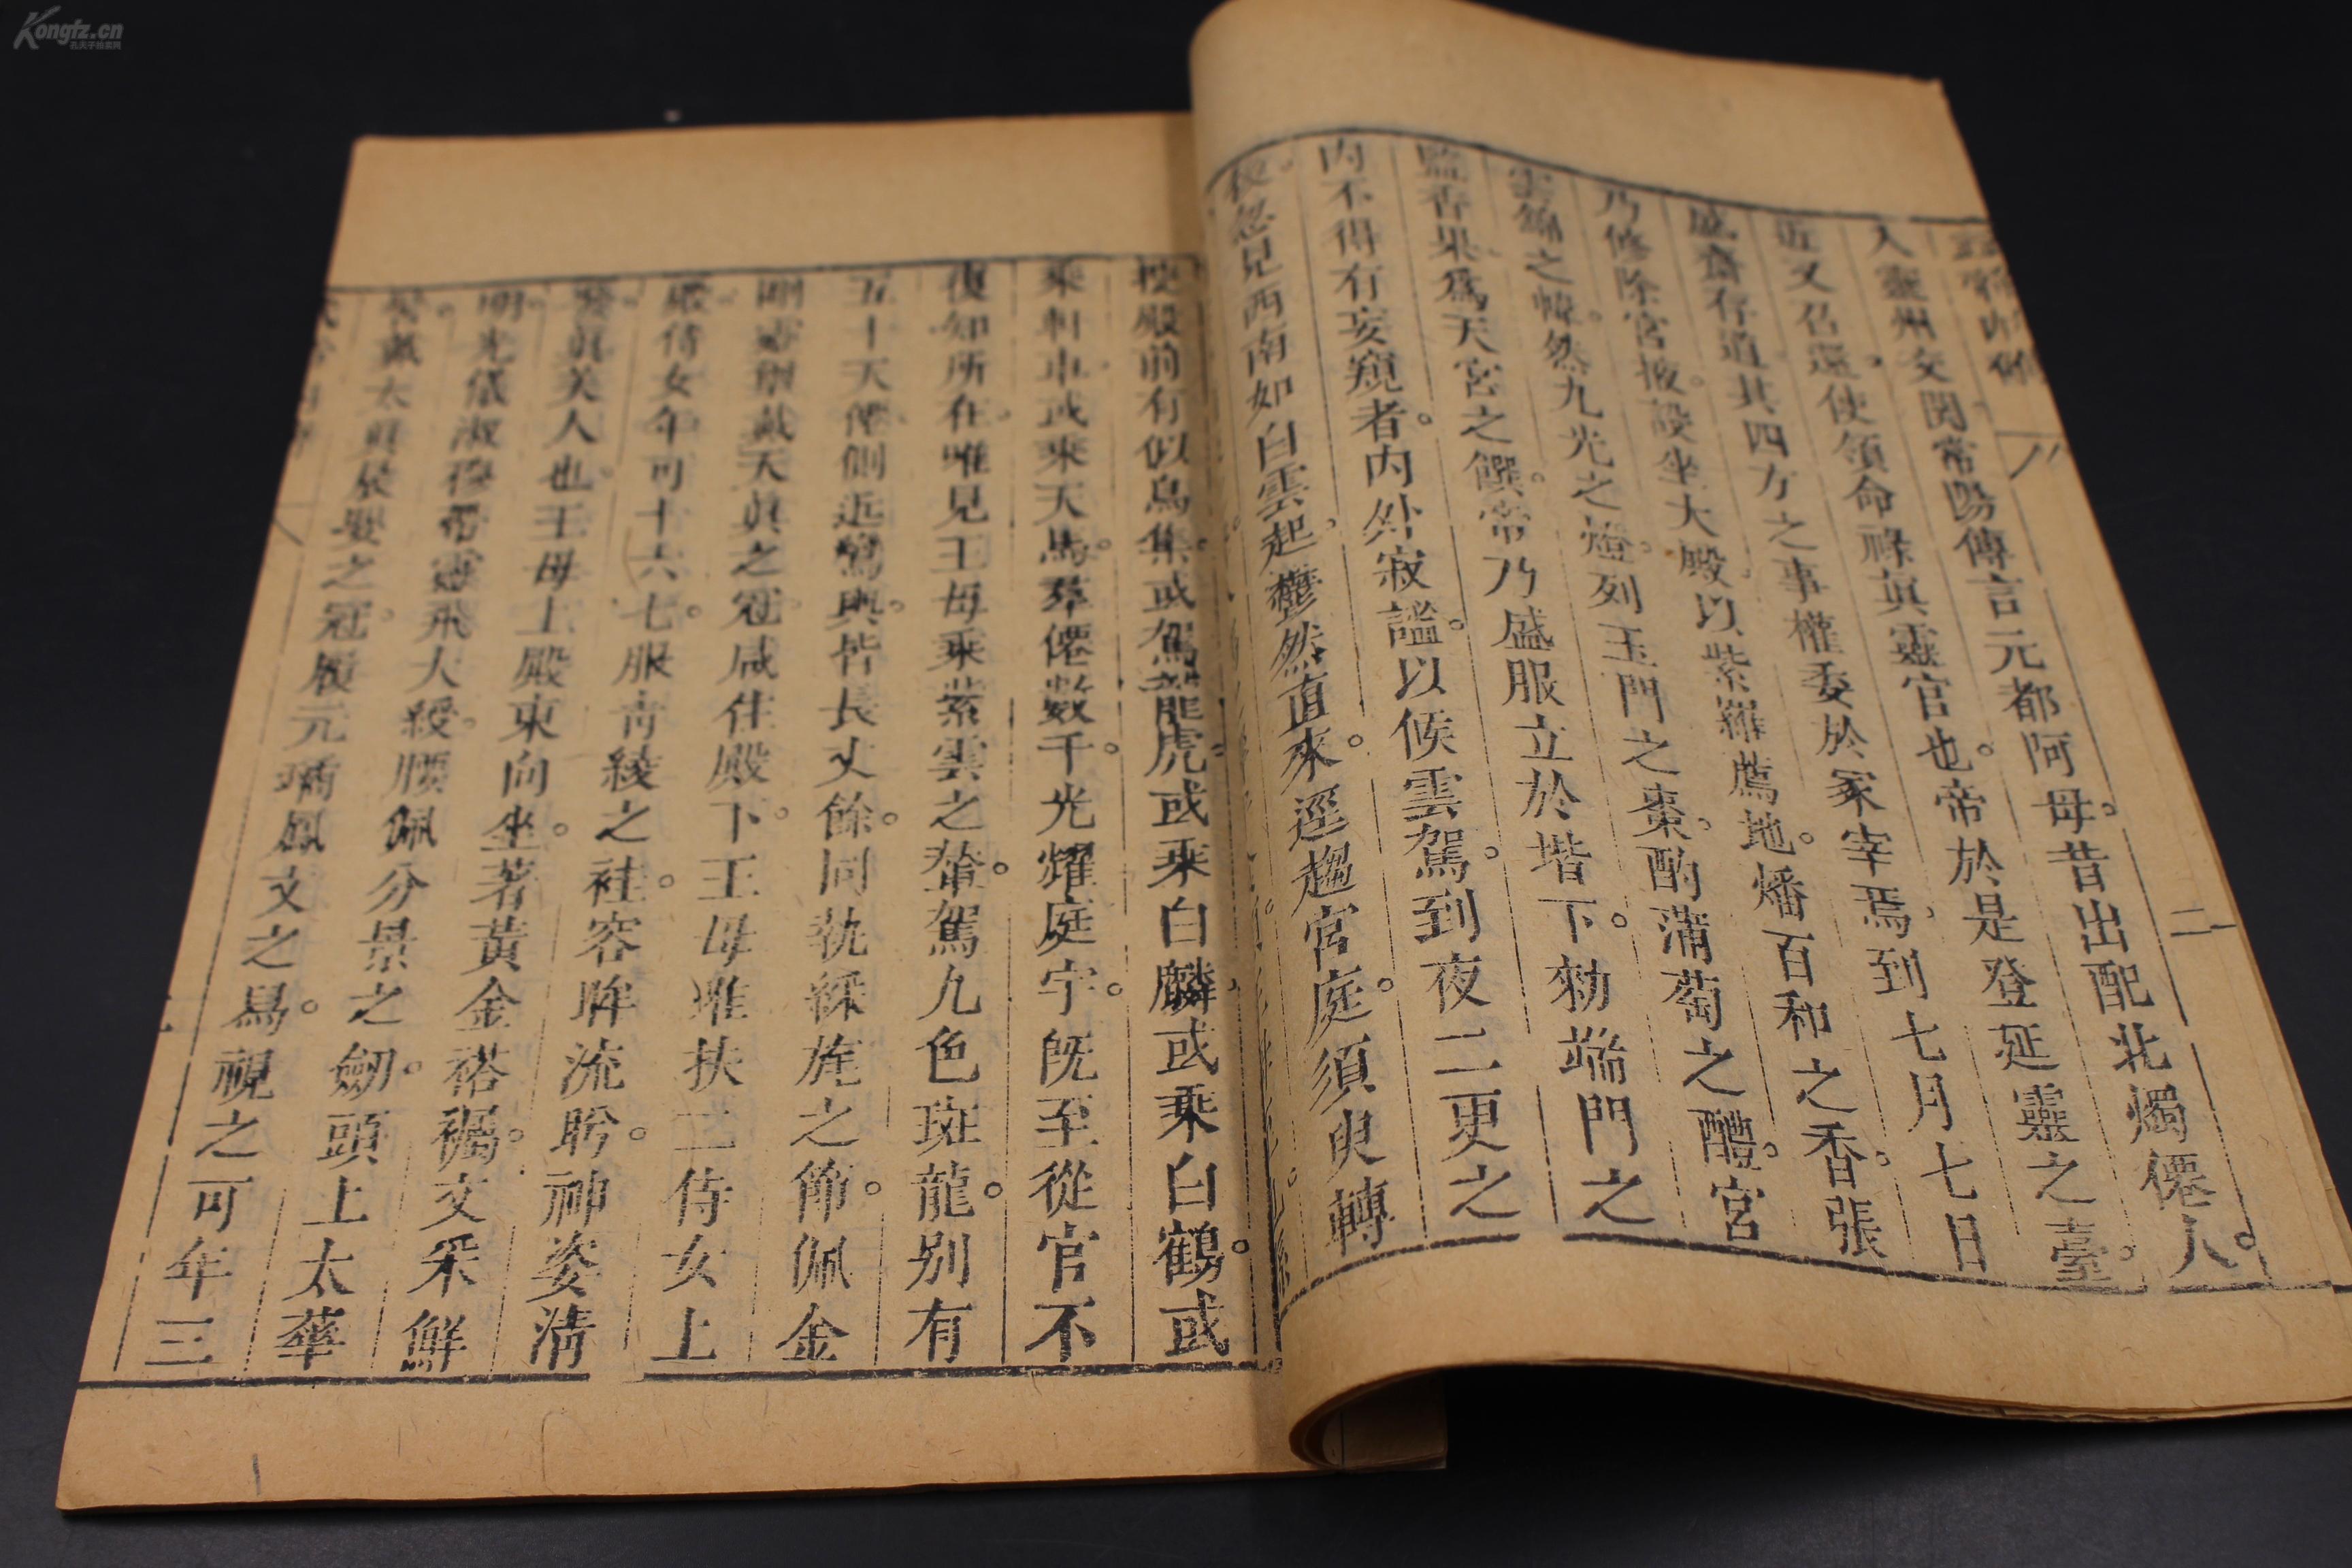 Kongfz.cn
二
入靈州交関常陽傳言元都阿母。昔出配北燭僊人。
近又召還使領命祿眞靈官也。帝於是登延靈之臺。
盛齋存道其四方之事權委於冢宰焉。到七月七日
乃修除宮掖。設坐大殿以紫羅薦地。燔百和之香。張
雲錦之幃。然九光之燈。列玉門之棗。酌蒲萄之醴。宮
監香果爲天宮之饌。帝乃盛服立於堦下。勑端門之
内不得有妄窺者。内外寂謐。以候雲駕。到夜二更之
後。忽見西南如白雲起。鬱然直來。逕趨宮庭。須臾轉
有似鳥集。或駕龍虎。或乘白麟。或乘白鶴。或
乘軒車。或乘天馬。羣僊數千。光耀庭宇。既至從官不
復知所在。唯見王母乘紫雲之輦。駕九色斑龍。别有
五十天僊。側近鸞輿。皆長丈餘。同執綵旄之節。佩金
剛靈璽。戴天眞之冠。咸住殿下。王母唯扶二侍女上
殿。侍女年可十六七。服靑綾之袿。容眸流盻。神姿淸
發。眞美人也。王母上殿東向坐。著黃金褡𧞤。文采鮮
明。光儀淑穆。帶靈飛大綬。腰佩分景之劒。頭上太華
髻。戴太眞晨嬰之冠。履元璚鳳文之舃。視之可年三